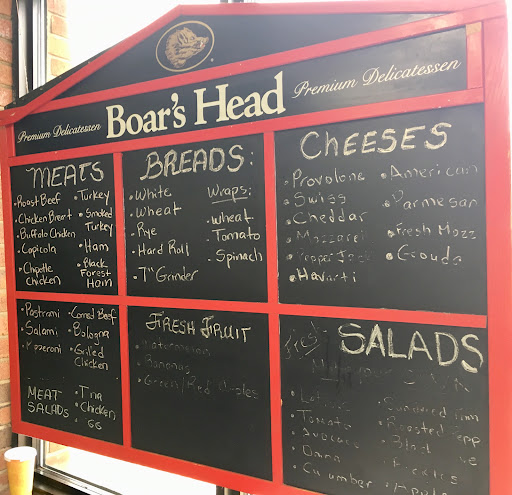 Premium Delicatessen Boar's Head Premium Delicatessen
MEATS
• Roast Beef
• Chicken Breast
• Buffalo Chicken
• Capicola
• Chipotle
Chicken
• Turkey
• Smoked
Turkey
• Ham
• Black
Forest
Ham
• Pastrami
• Salami
• Corned Beef
• Bologna
• Grilled
Chicken
MEAT
SALADS
• Tuna
• Chicken
BREADS:
• White
• Wheat
• Rye
• Hard Roll
• 7" Grinder
Wraps:
• Wheat
• Tomato
• Spinach
CHEESES
• Provolone
• Swiss
• Cheddar
• Pepper Jack
• Havarti
• American
• Parmesan
• Fresh Mozz
• Gouda
FRESH FRUIT
• Bananas
• Green/Red Apples
Fresh SALADS
• Tomato
• Roasted Pepp